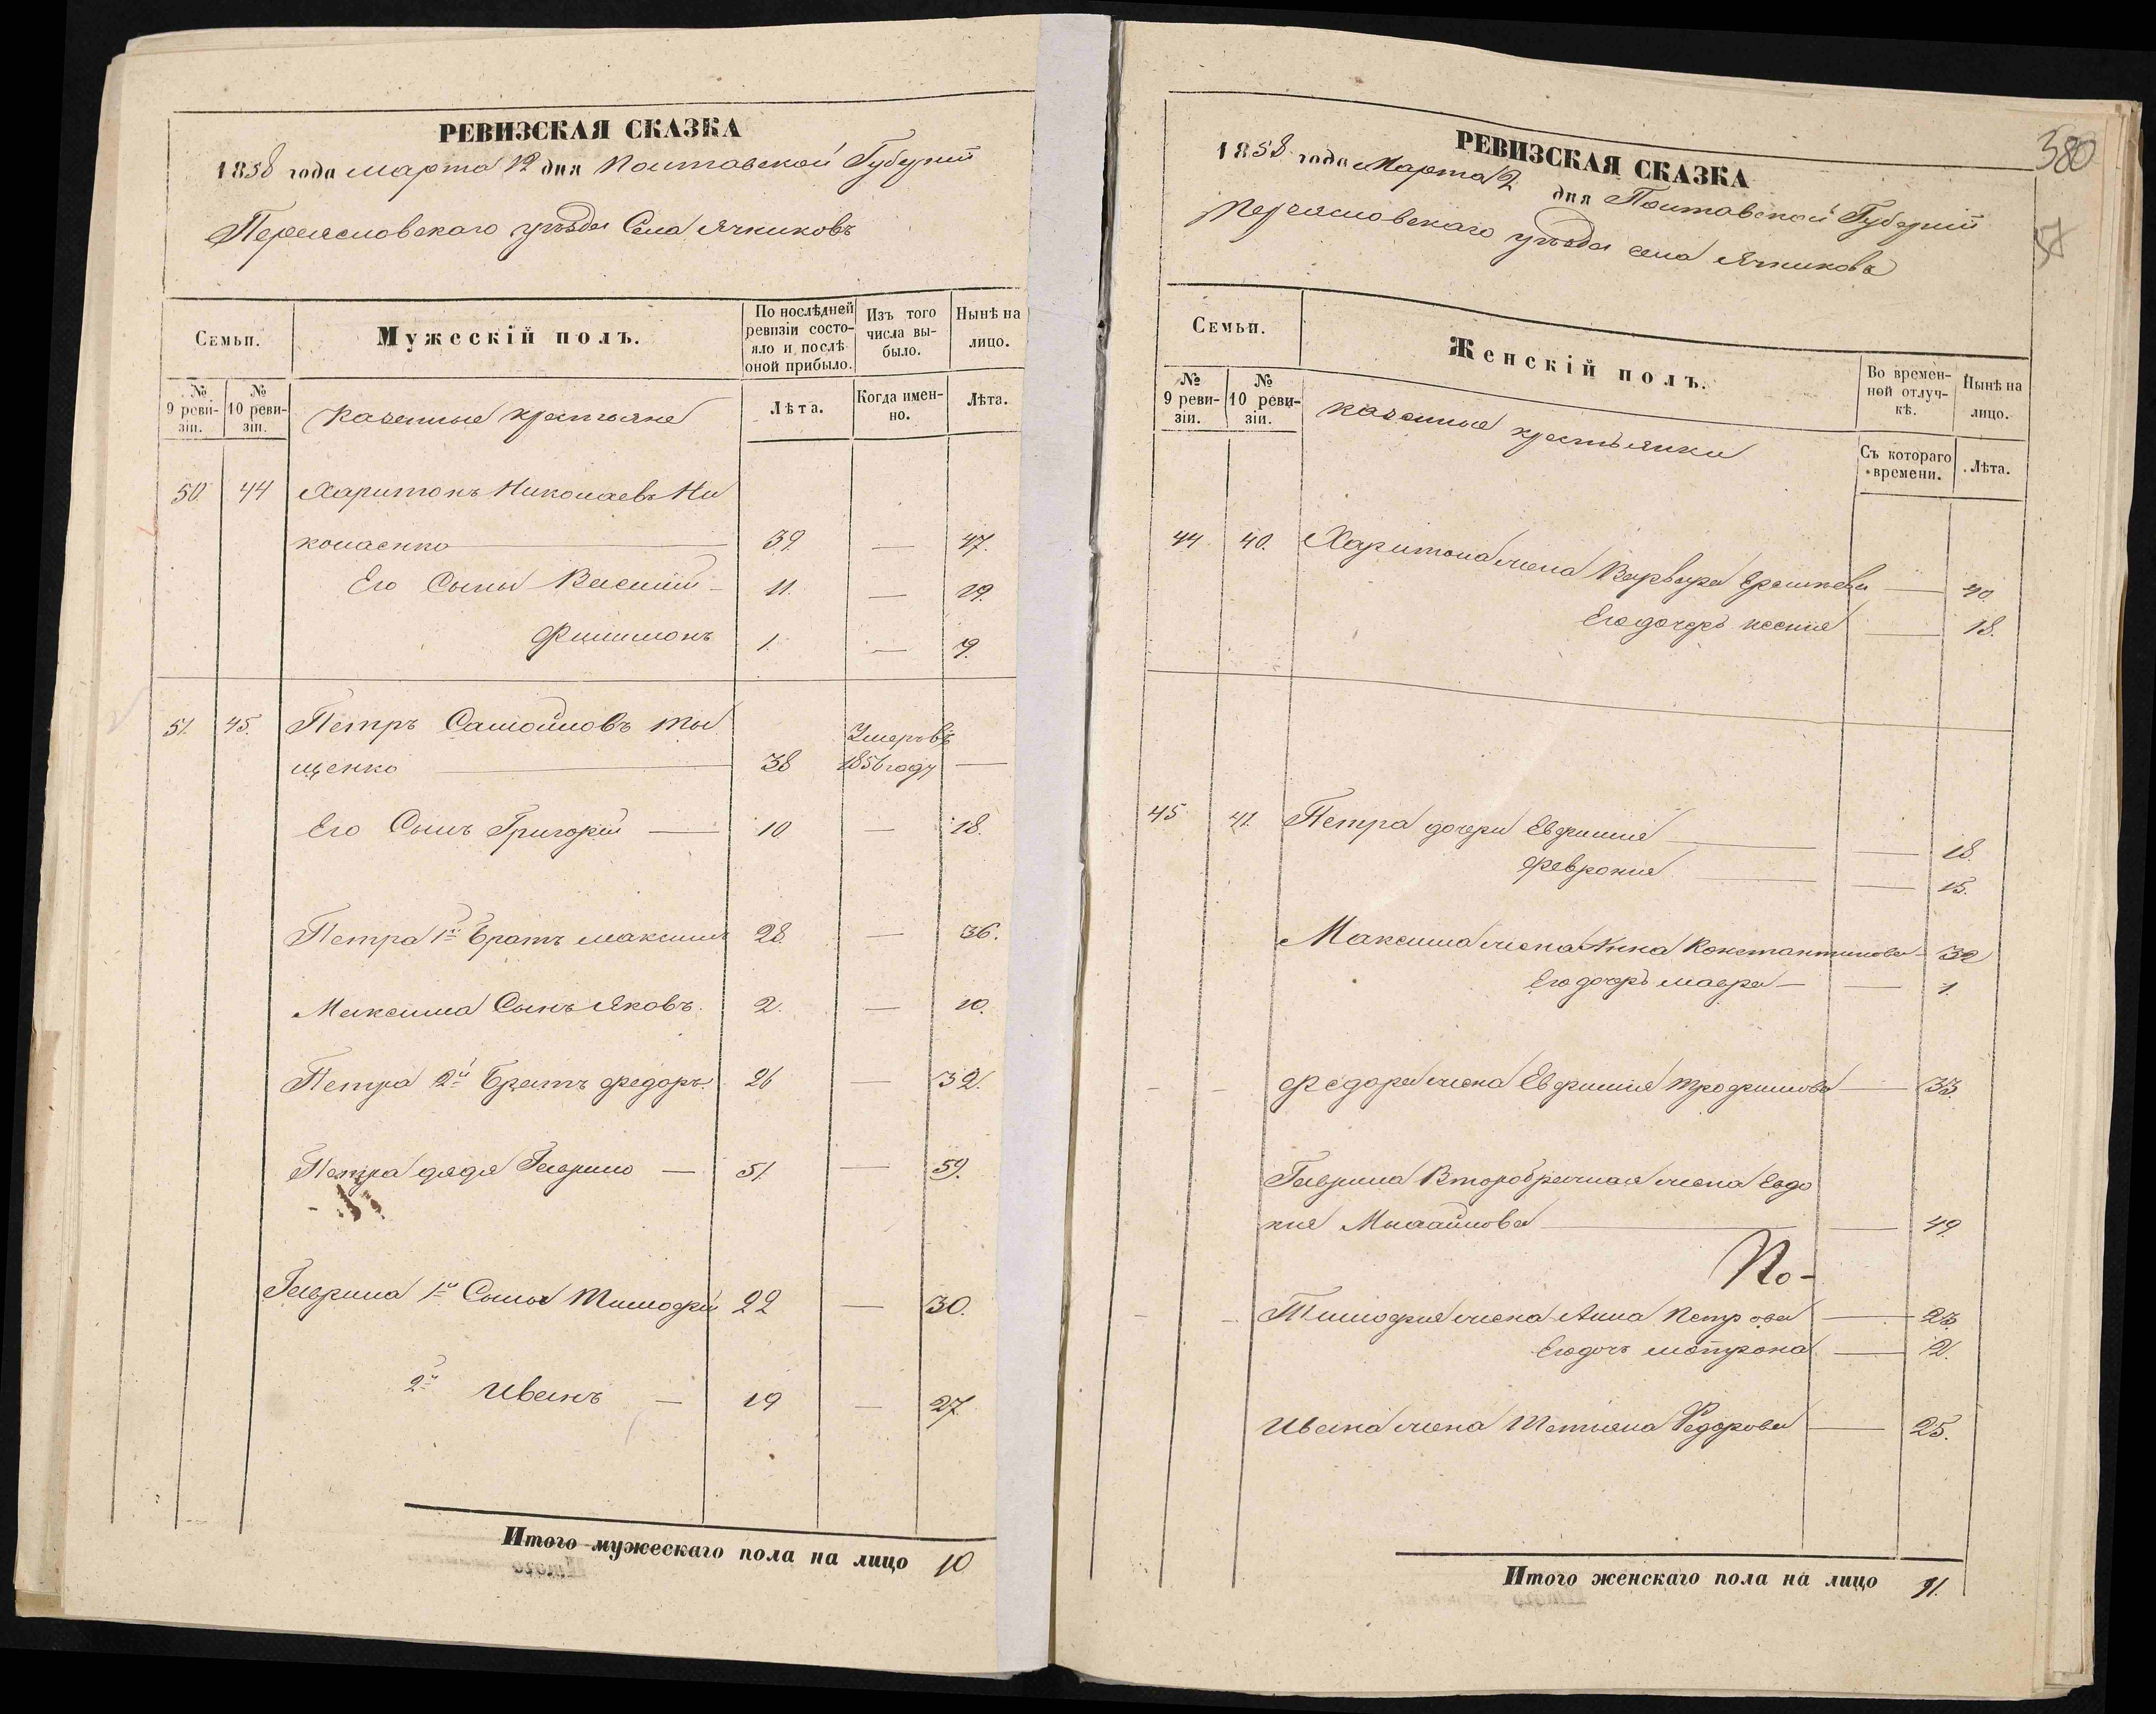 РЕВИЗСКАЯ СКАЗКА
1858 года марта 12 дня Полтавской Губерніи
Переясловскаго уѣзда Села Ячниковъ
Семьи.
Мужескій полъ.
По послѣдней ревизіи состояло и послѣ оной прибыло.
Изъ того числа выбыло.
Нынѣ на лицо.
№ 9 ревизіи.
№ 10 ревизіи.
Казенные крестьяне
Лѣта.
Когда именно.
Лѣта.
50. 44 Харитонъ Николаевъ Ни
колаенко — 39. — 47.
Его Сыны Василий — 11. — 19.
Филимонъ 1. — 9.
51. 45. Петръ Самойловъ Ты
щенко — 38 Умеръ въ 1856 году —
Его Сынъ Григорій — 10 — 18.
Петра 1й Братъ Максимъ 28. — 36.
Максима Сынъ Яковъ. 2. — 10.
Петра 2й Братъ Федоръ. 26 — 32.
Петра дядя Гаврило — 51. — 59.
Гаврила 1й Сынъ Тимофей 22 — 30.
2й Иванъ — 19 — 27.
Итого мужескаго пола на лицо 10
380
РЕВИЗСКАЯ СКАЗКА
1858 года Марта 12 дня Полтавской Губерніи
Переясловскаго уѣзда села Ячникова
Семьи.
Женскій полъ.
Во временной отлучкѣ.
Нынѣ на лицо.
№ 9 ревизіи.
№ 10 ревизіи.
казенные крестьянки
Съ котораго времени.
Лѣта.
44 40. Харитона жена Варвара — 40.
Его дочерь Ксенія — 18.
45 41. Петра дочери Евфимія — 18.
Феврониа — 15.
Максима жена Анна Константинова — 32
Его дочерь Мавра — 1.
Федора жена Евфимія Трофимова — 33.
Гаврила Второбрачная жена Евдо
кия Михайлова — 49.
По-
Тимофея жена Анна Петрова — 23.
Его дочь Мотрона — 2.
Ивана жена Татіана Федорова — 25.
Итого женскаго пола на лицо 11.